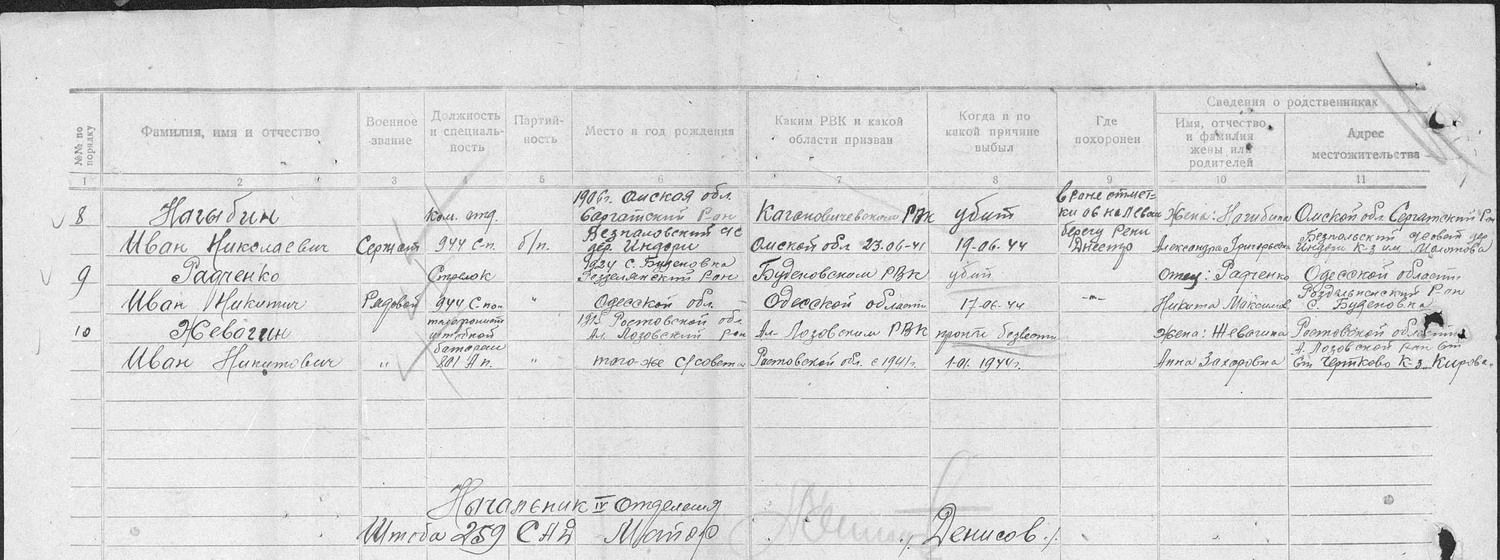 №№ по порядку
Фамилия, имя и отчество
Военное звание
Должность и специальность
Партийность
Место и год рождения
Каким РВК и какой области призван
Когда и по какой причине выбыл
Где похоронен
Сведения о родственниках
Имя, отчество и фамилия жены или родителей
Адрес местожительства
1 2 3 4 5 6 7 8 9 10 11
8 Нагыбин
Иван Николаевич
Сержант
Ком. отд.
944 сп.
б/п.
1906г. Омская обл.
Саргатский р-он
дер. Индери
Кагановичевским РВК
Омской обл 23.06-41
убит
19-06-44
на левом
берегу реки
Днестр
Жена: Нагибина
Александра Григорьевн
Омской обл. Саргатский р-он
9 Радченко
Иван Никитич
Рядовой
Стрелок
944 с по-
"
1924 с. Буденовка
Одесской обл
Буденовским РВК
Одесской области
убит
17-06-44
-"-
отец: Радченко
Никита
Одесской области
р-он
с. Буденовка
10 Жевагин
Иван Никитович
"
батареи
801 Ап.
"
1915 Ростовской обл
Ал. Лозовский р-он
того-же с/совета
Ал. Лозовским РВК
Ростовской обл. с 1941г.
пропал безвести
1-01. 1944г.
Жена: Жевагина
Анна Захаровна
Ростовской области
А. Лозовской р-он
ст. Чертково к-з Кирова.
Начальник IV отделения
Штаба 259 САД Майор /Денисов./